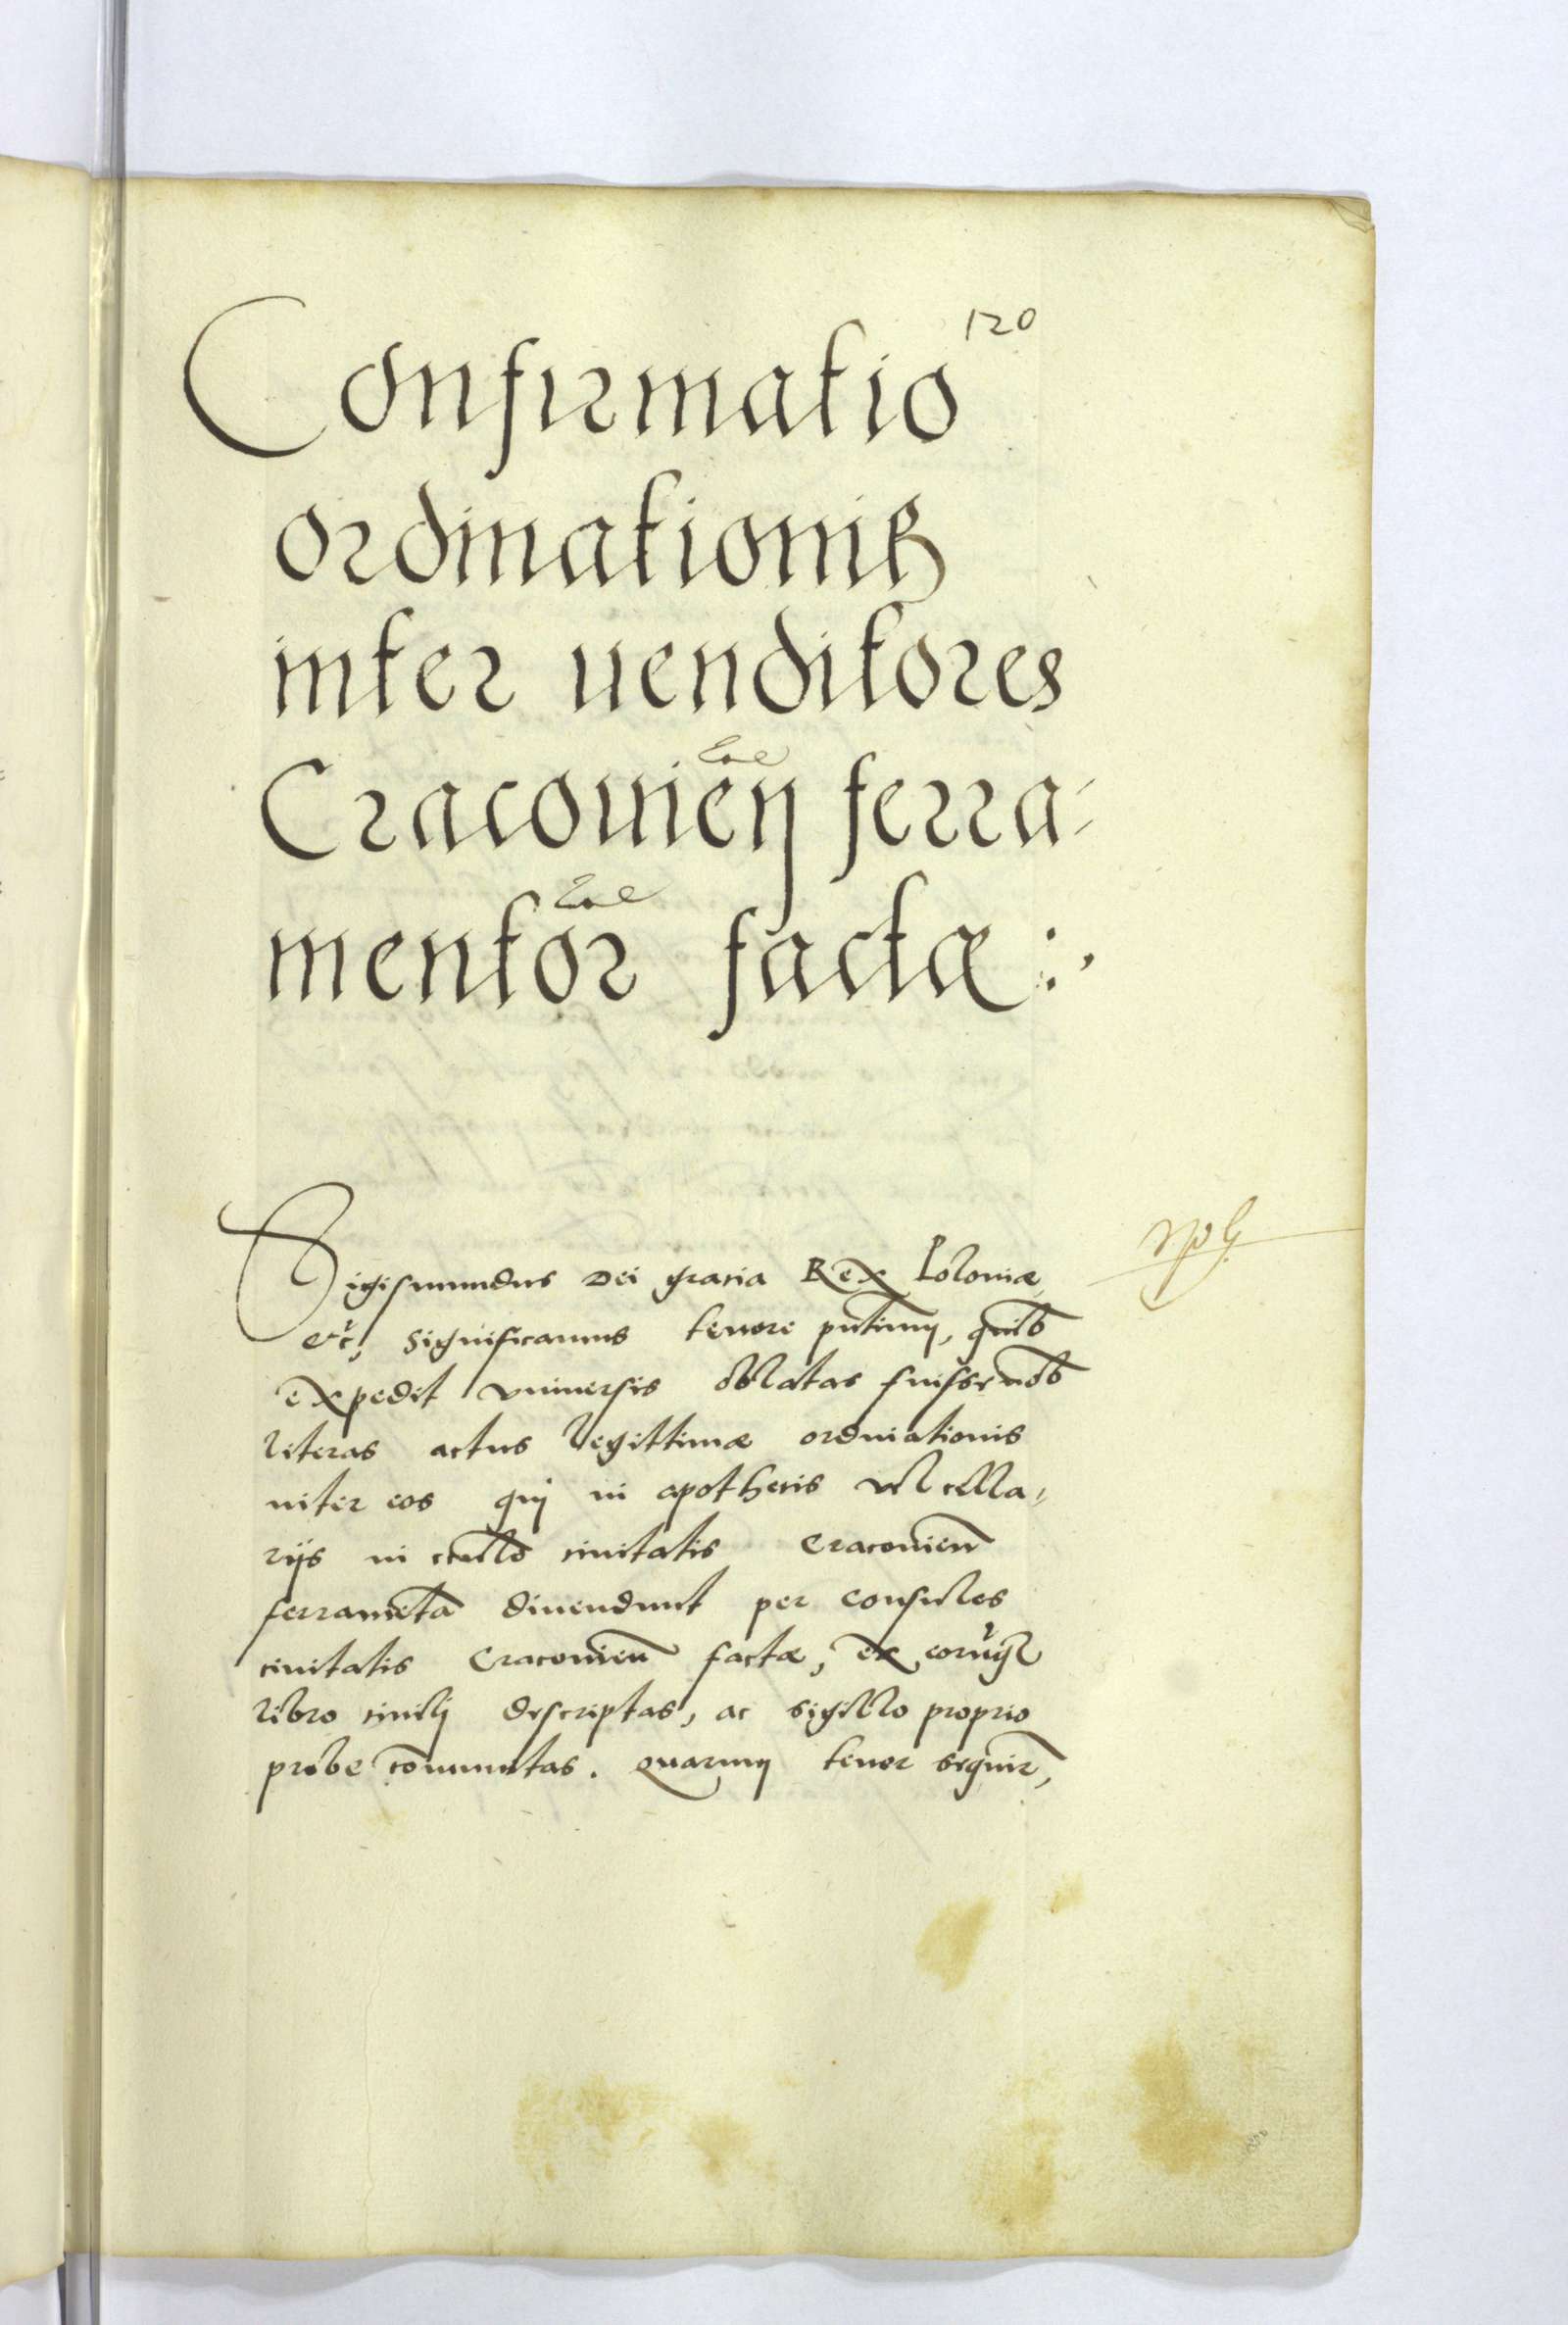 120
Confirmatio
ordinationis
inter uenditores
Cracouien̄ ferra-
mentor̄ factæ :,
Sigismundus Dei gracia Rex Poloniæ
etc, Significamus tenore pn̄tium, quib
expedit vniuersis oblatas fuisse nob
literas actus legittimæ ordinationis
inter eos qui in apothecis vel cella-
rijs in circulo ciuitatis Cracouien̄
ferramēta diuendunt per Consules
ciuitatis Cracouien̄ factæ, ex eorūq
libro ciuili descriptas, ac sigillo proprio
probe cōmunitas. quarum tenor sequir̄,